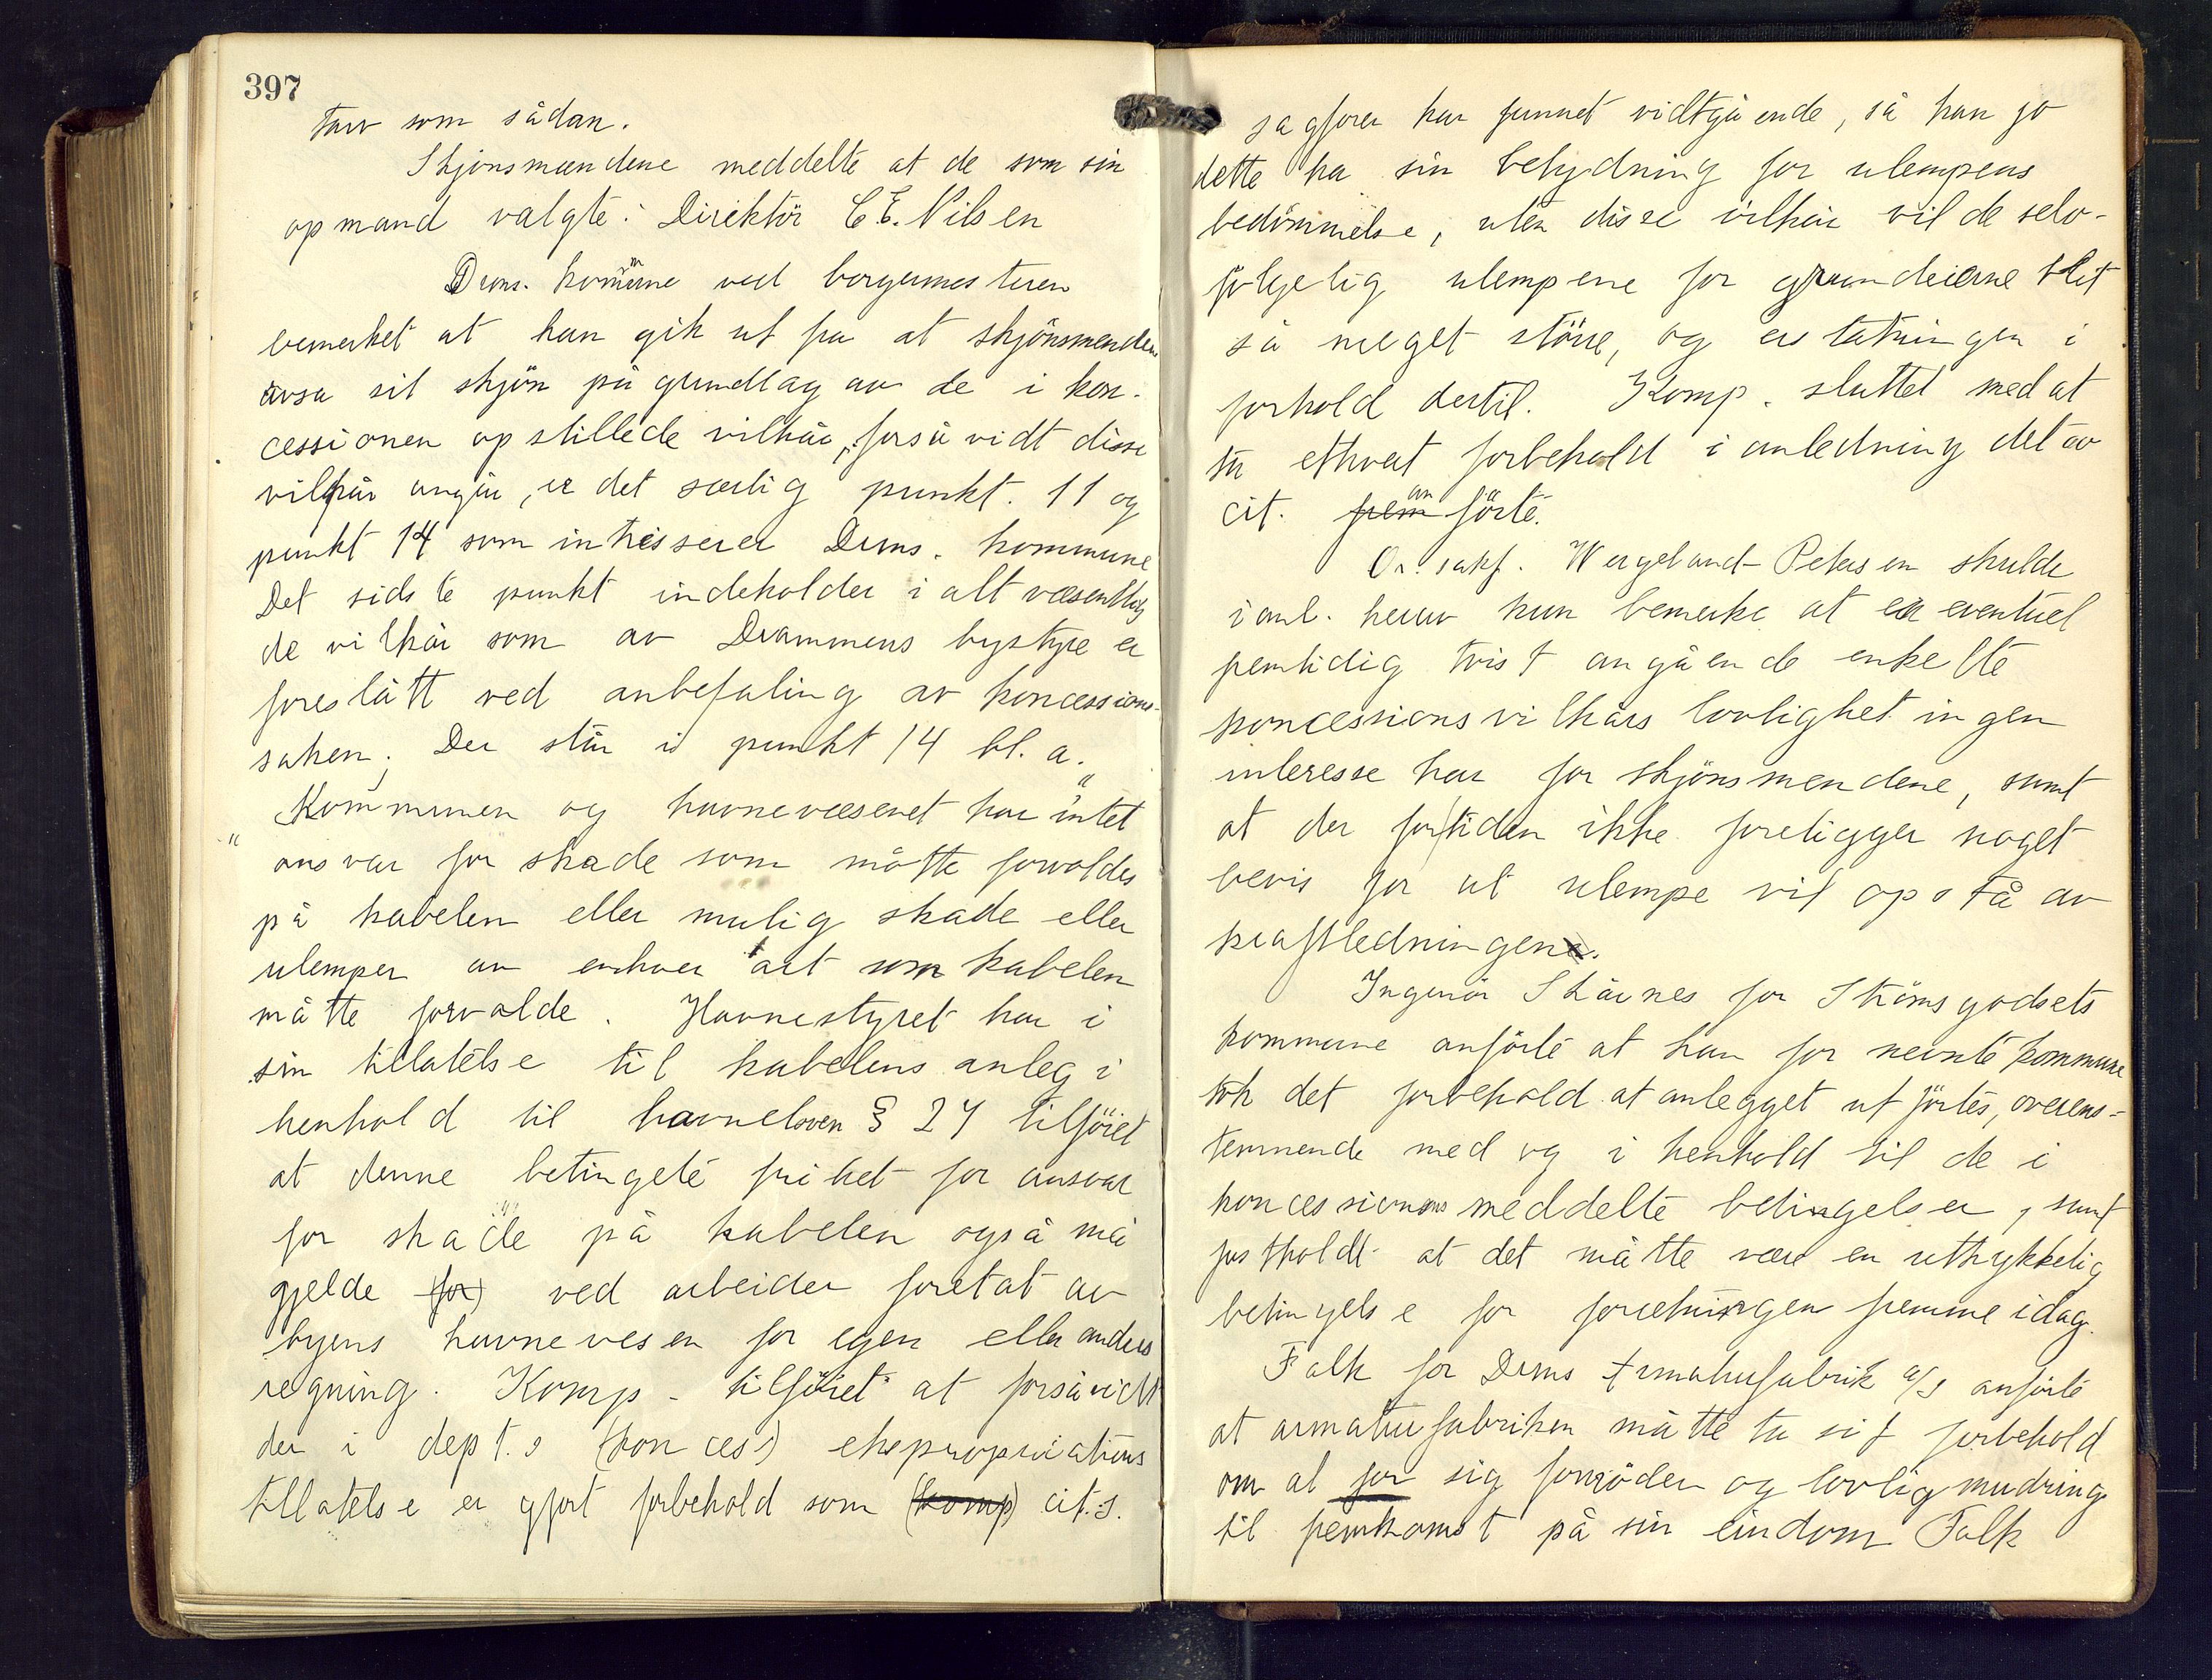 397
tarv som sådan.
Skjönsmændene meddelte at de som sin
opmand valgte: Direktör C E. Nilsen
Dms. komüne ved borgermesteren
bemerket at han gik ut fra at skjönsmenden
avsa sit skjön på grundlag av de i kon-
cessionen opstillede vilkår, forsåvidt disse
vilkår angår, er det særlig punkt. 11 og
punkt 14 som intresserer Dms. kommune
Det sidste punkt indeholder i alt væsentlig
de vilkår som av Drammens bystyre er
foreslått ved anbefaling av koncessions-
saken; Der står i punkt 14 bl. a.
"Kommunen og havnevæsenet har intet
ansvar for skade som måtte forvoldes
på kabelen eller mulig skade eller
ulemper av enhver art som kabelen
måtte forvolde. Havnestyret har i
sin tillatelse til kabelens anleg i
henhold til havneloven § 27 tilföiet
at denne betingete frihet for ansvar
for skade på kabelen også må
gjelde (for) ved arbeider foretat av
byens havnevesen for egen eller andres
regning. Komp. tilföiet at forsåvidt
der i dept.s (konces) ekspropriations
tillatelse er gjort forbehold som (komp) cit.s.
sagfører har funnet vidtgående, så kan jo
dette ha sin betydning for ulempens
bedömmelse, uten disse vilkår vil de selv-
fölgelig ulempene for grundeierne blit
så meget större, og erstatningen i
forhold dertil. Komp. sluttet med at
ta ethvert forbehold i anledning det av
cit. frem an förte.
O.r. sakf. Wergeland-Petersen skulde
i anl. herav kun bemerke at en eventuel
fremtidig tvist angående enkelte
koncessionsvilkårs lovlighet ingen
interesse har for skjönsmendene, samt
at der for tiden ikke foreligger noget
bevis for at ulempe vil opstå av
kraftledningene.
Ingeniör Skårnes for Strömsgodsets
kommune anförte at han for nevnte kommune
tok det forbehold at anlegget utförtes, overens-
temmende med og i henhold til de i
koncessionens meddelte betingelser, samt
fastholdt at det måtte være en uttrykkelig
betingelse for forretningen fremme idag.
Falk for Dms Armaturfabrik a/s anförte
at armaturfabriken måtte ta sit forbehold
om at for sig områden og lovlig mudring
til fremkomst på sin eindom Falk